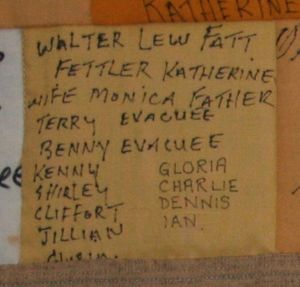 KATHERINE
WALTER LEW FATT
FETTLER KATHERINE
WIFE MONICA FATHER
TERRY EVACUEE
BENNY EVACUEE
KENNY GLORIA
SHIRLEY CHARLIE
CLIFFORT DENNIS
JILLIAN IAN